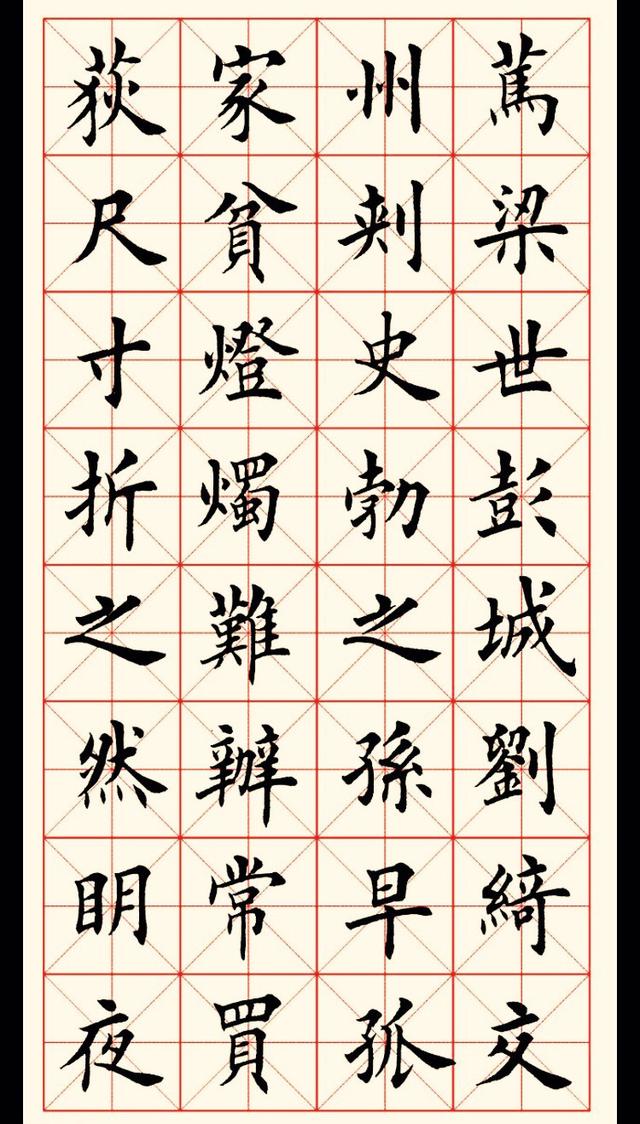 篤梁世彭城劉綺交
州刾史勃之孫早孤
家貧燈燭難辦常買
荻尺寸折之然眀夜